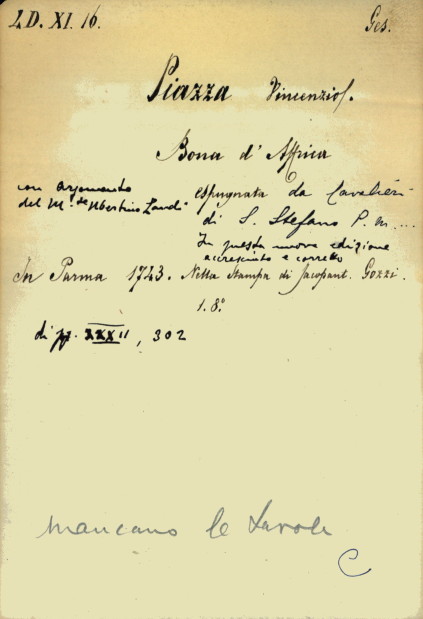 L D. XI. 16. Ges.
Piazza Vincenzio f.
Bona d' Affrica
con argomento espugnata da Cavalieri
del M.se Ubertino Landi di S. Stefano P. m. ...
In questa nuova edizione
accresciuto e corretto
In Parma 1743. Nella Stampa di Jacopant. Gozzi.
1. 8.°
di pp. XXXII, 302
mancano le tavole
C